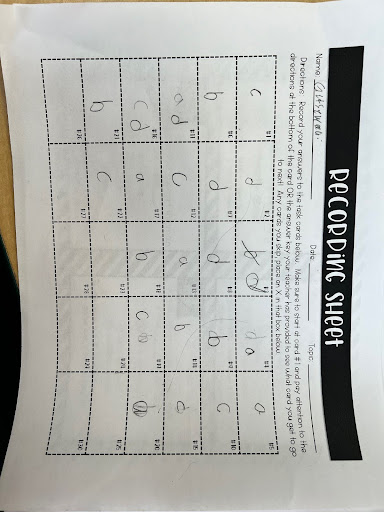 RECORDING SHEET
Name: Date: Topic:
Directions: Record your answers to the task cards below. Make sure to start at card #1 and pay attention to the
directions at the bottom of the card OR the answer key your teacher has provided to see what card you get to go
to next! Any cards you skip, place an X in that box below.
#1 #2 #3 #4 #5
c d d a a
#6 #7 #8 #9 #10
b d d b c
#11 #12 #13 #14 #15
a d c a b d
#16 #17 #18 #19 #20
c d a b c b
#21 #22 #23 #24 #25
b c
#26 #27 #28 #29 #30